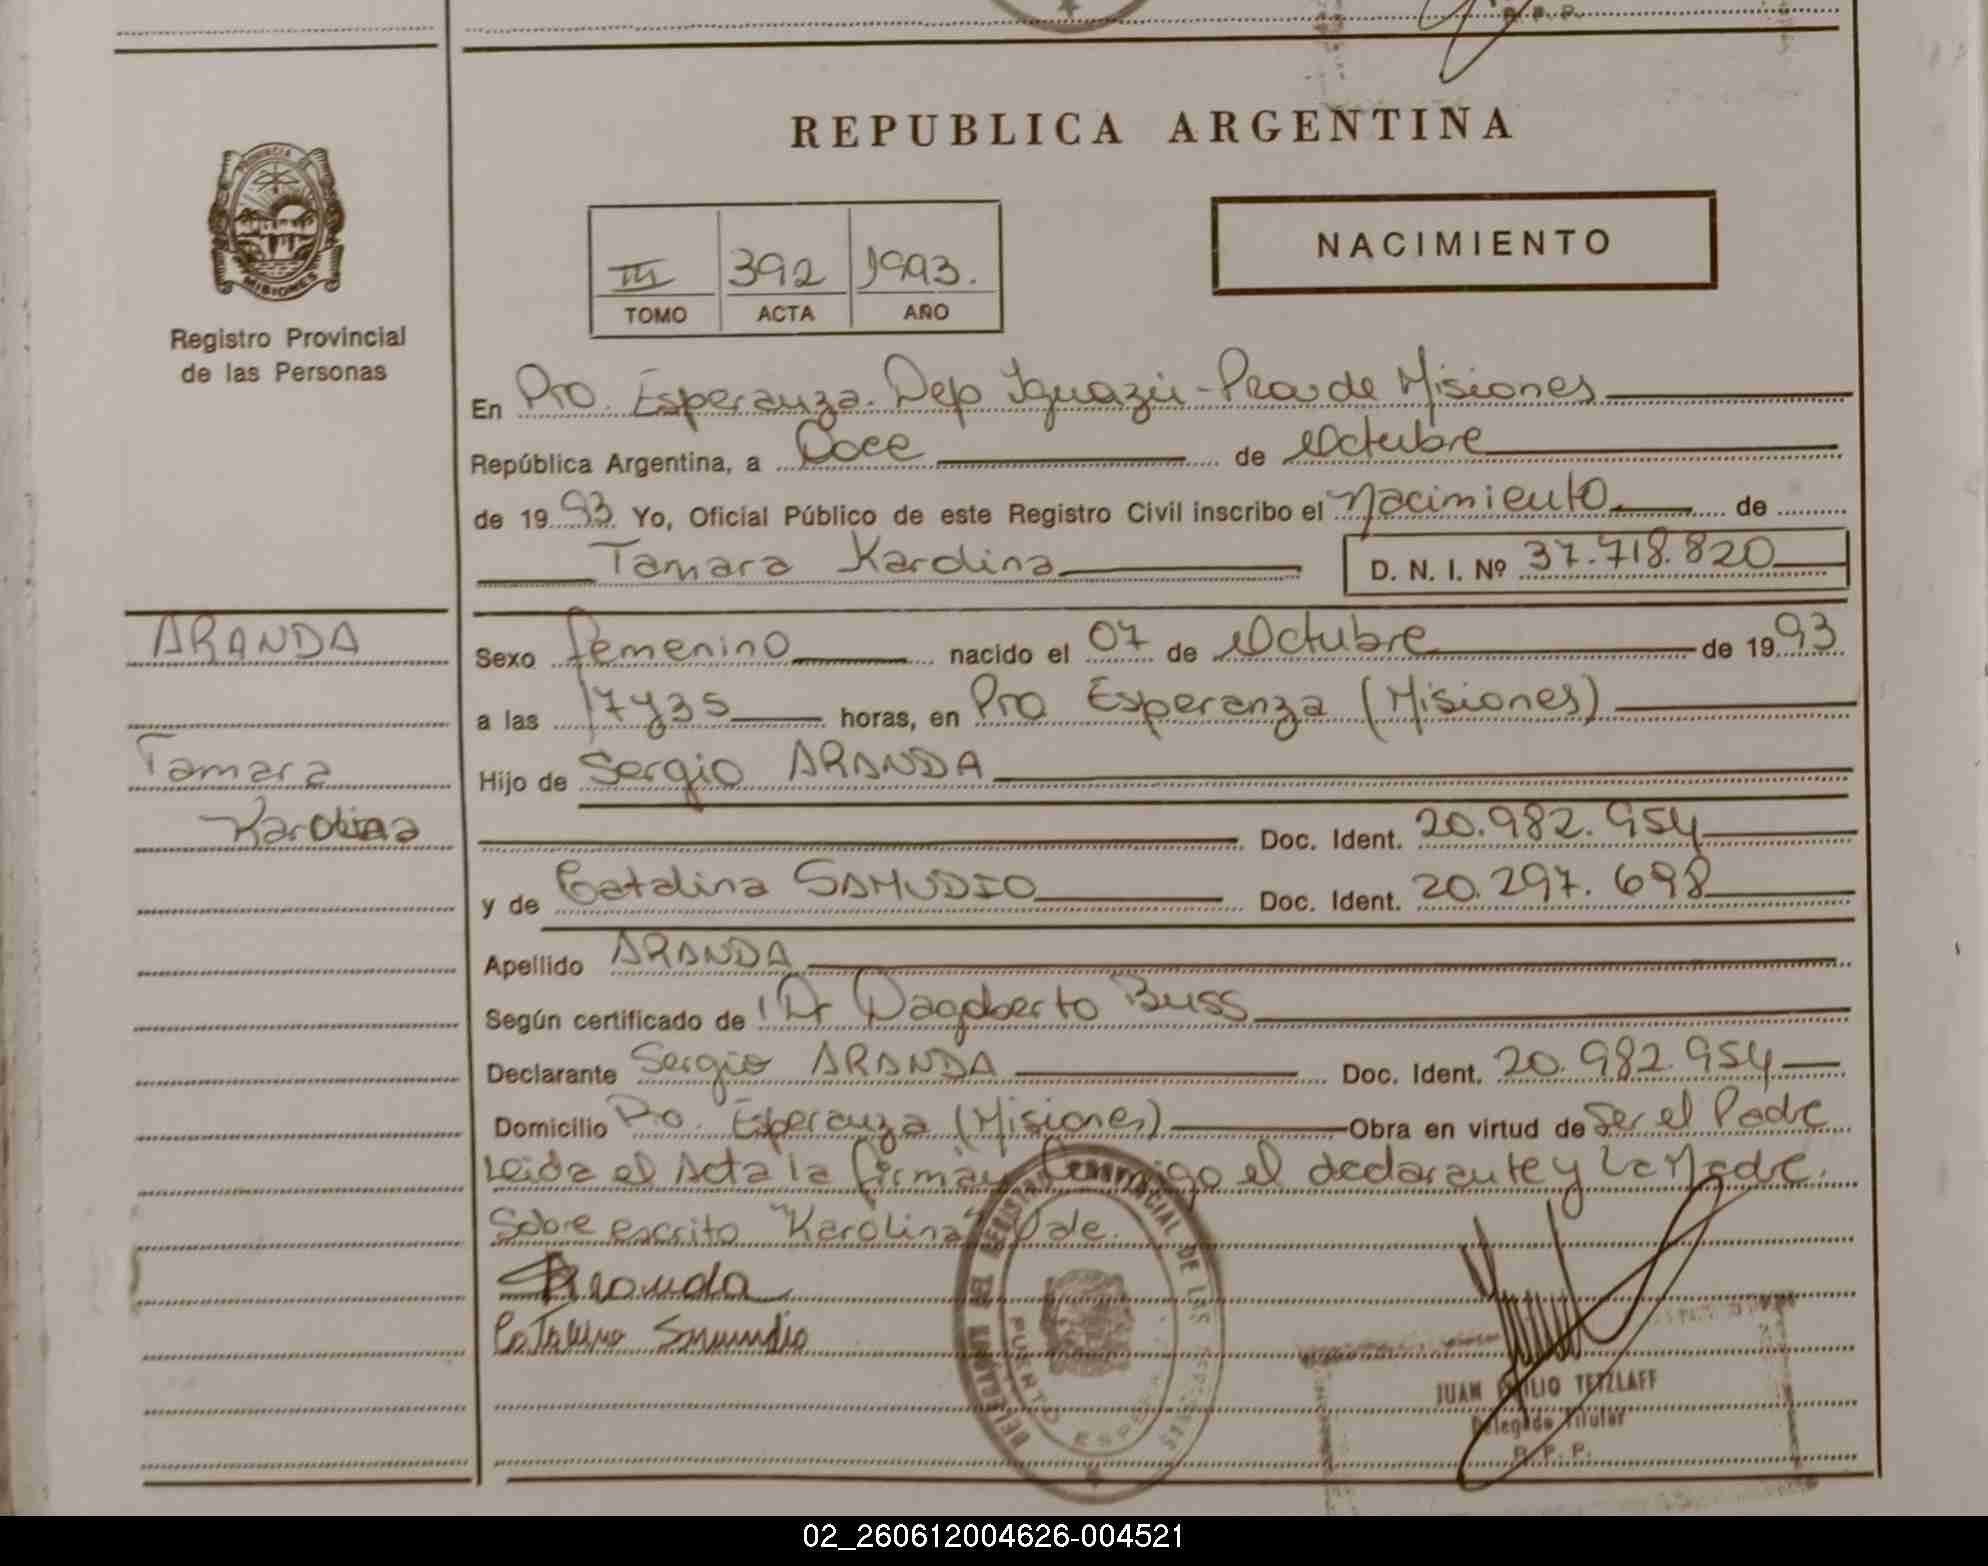 R. P. P.
REPUBLICA ARGENTINA
PROVINCIA
MISIONES
Registro Provincial
de las Personas
III 392 1993.
TOMO ACTA AÑO
NACIMIENTO
En Pto. Esperanza. Dep Iguazú - Prov de Misiones
República Argentina, a Doce de Octubre
de 1993 Yo, Oficial Público de este Registro Civil inscribo el Nacimiento de
Tamara Karolina D. N. I. Nº 37.718.820
ARANDA
Tamara
Karolina
Sexo femenino nacido el 07 de Octubre de 1993
a las 17y35 horas, en Pto Esperanza (Misiones)
Hijo de Sergio ARANDA
Doc. Ident. 20.982.954
y de Catalina SAMUDIO Doc. Ident. 20.297.698
Apellido ARANDA
Según certificado de Dr Dagoberto Buss
Declarante Sergio ARANDA Doc. Ident. 20.982.954
Domicilio Pto. Esperanza (Misiones) Obra en virtud de Ser el Padre
Leida el Acta la firman conmigo el declarante y La Madre.
Sobre escrito "Karolina" Vale.
Aranda
Catalina Samudio
JUAN EMILIO TETZLAFF
Delegado Titular
R. P. P.
02_260612004626-004521